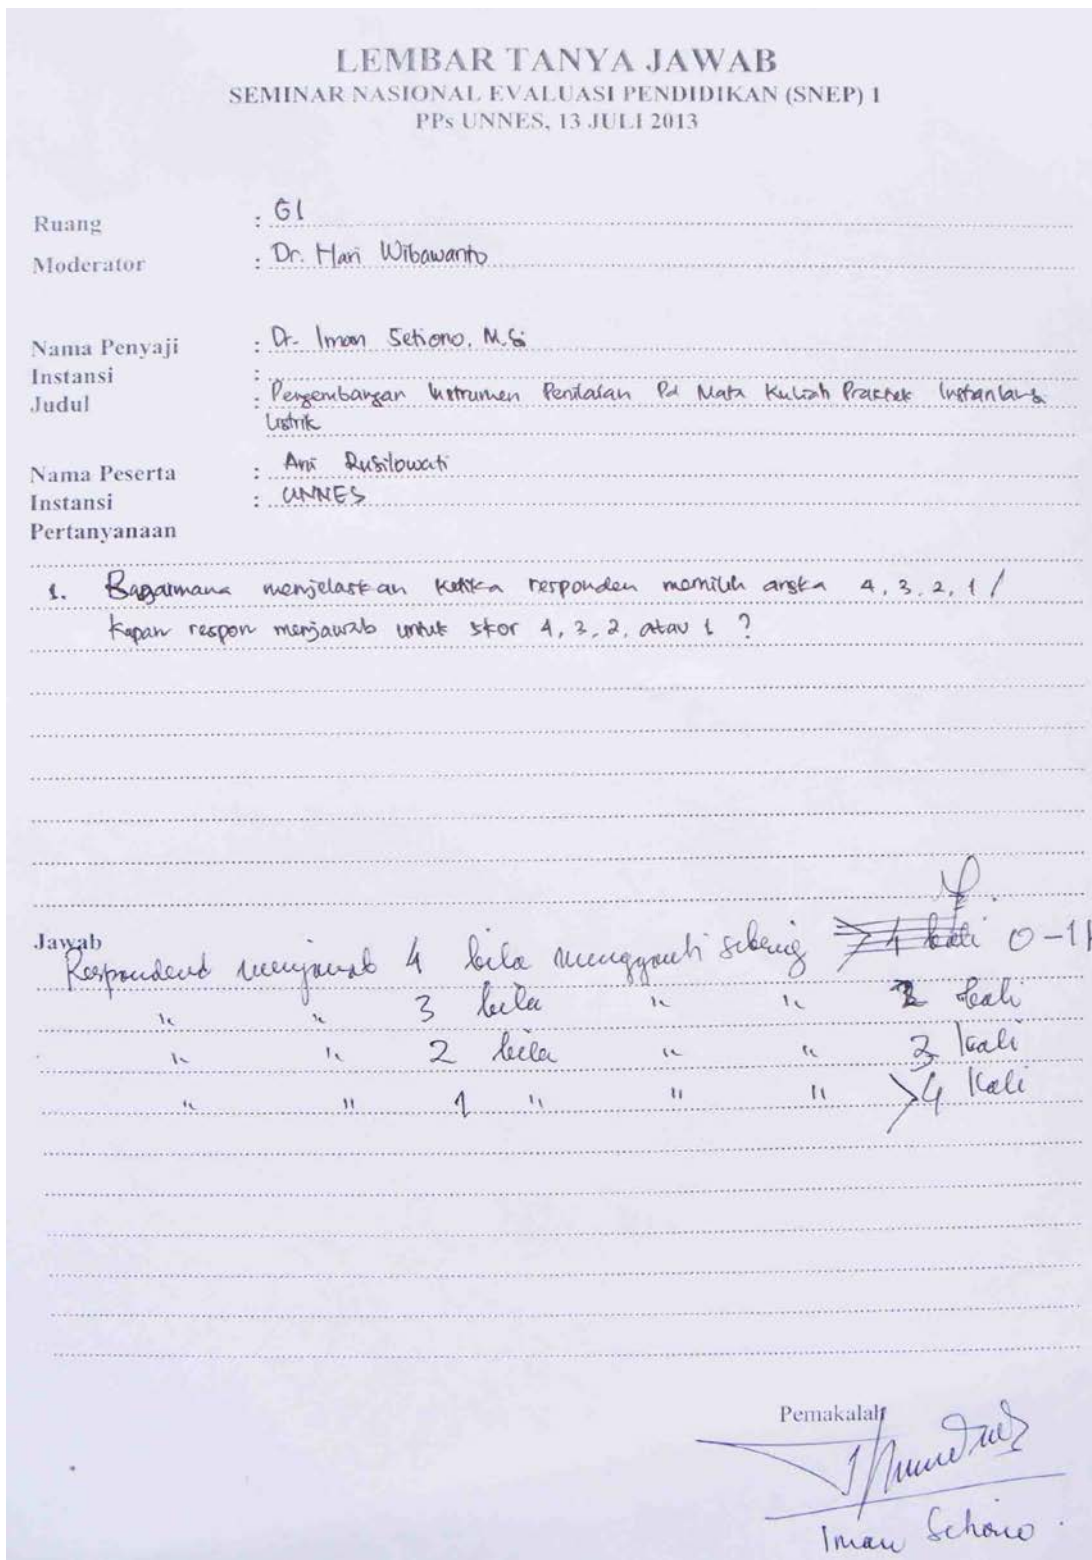 LEMBAR TANYA JAWAB
SEMINAR NASIONAL EVALUASI PENDIDIKAN (SNEP) 1
PPs UNNES, 13 JULI 2013
Ruang : G1
Moderator : Dr. Hari Wibawanto
Nama Penyaji : Dr. Iman Setiono, M.Si
Instansi :
Judul : Pengembangan Instrumen Penilaian Pd Mata Kuliah Praktek
Listrik
Nama Peserta : Ani Rusilowati
Instansi : UNNES
Pertanyanaan
1. Bagaimana menjelaskan ketika responden memilih angka 4, 3, 2, 1 /
kapan respon menjawab untuk skor 4, 3, 2, atau 1 ?
Jawab
Respondend menjawab 4 bila mengganti 0-1
" " 3 bila " " 2 kali
" " 2 bila " " 3 kali
" " 1 " " " >4 kali
Pemakalah
Iman Setiono